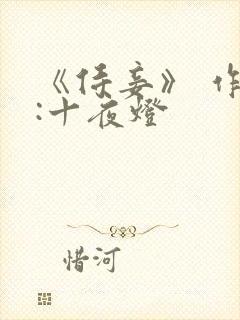 《侍妾》 作
:十夜燈
惜河